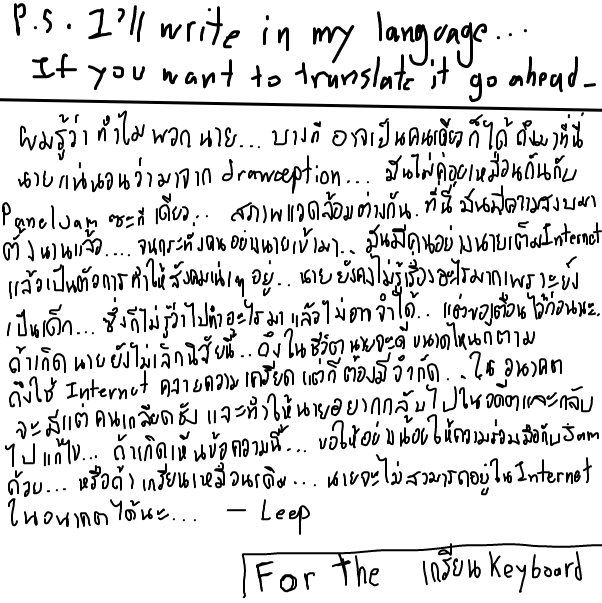 P.S. I'll write in my language...
If you want to translate it go ahead_
ผมรู้ว่า ทำไม พวก นาย... บางที อาจเป็นคนเดียว ก็ ได้ ถึงมาที่นี่
นายแน่นอนว่ามาจาก drawception... มันไม่ค่อยเหมือนกันกับ
Paneljam ซะทีเดียว.. สภาพแวดล้อมต่างกัน. ที่นี่ มันมีความสงบมา
ตั้งนานแล้ว.... จนกระทั่งคนอย่างนายเข้ามา.. มันมีคนอย่างนายเต็มInternet
แล้วเป็นตัวการทำให้สังคมเน่าๆ อยู่.. นาย ยังคงไม่รู้เรื่องอะไรมากเพราะยัง
เป็นเด็ก... ซึ่งก็ไม่รู้ว่าไปทำอะไร มา แล้วไม่อาจ จำได้.. แต่ขอเตือน ไว้ก่อนนะ.
ถ้าเกิด นาย ยังไม่เลิกนิสัยนี้.. ถึงใน ชีวิต นายจะดี ขนาดไหนก็ตาม
ถึงใช้ Internet คลายความ เครียด แต่ก็ต้องมีจำกัด.. ใน อนาคต
จะ มีแต่ คนเกลียดชัง และทำให้นายอยากกลับไปในอดีตและกลับ
ไป แก้ไข... ถ้าเกิดเห็นข้อความนี้... ขอให้อย่างน้อยให้ความร่วมมือกับJam
ด้วย... หรือถ้า เกรียนเหมือนเดิม... นายจะไม่สามารถอยู่ในInternet
ในอนาคตได้นะ... — Leep
For the เกรียนKeyboard